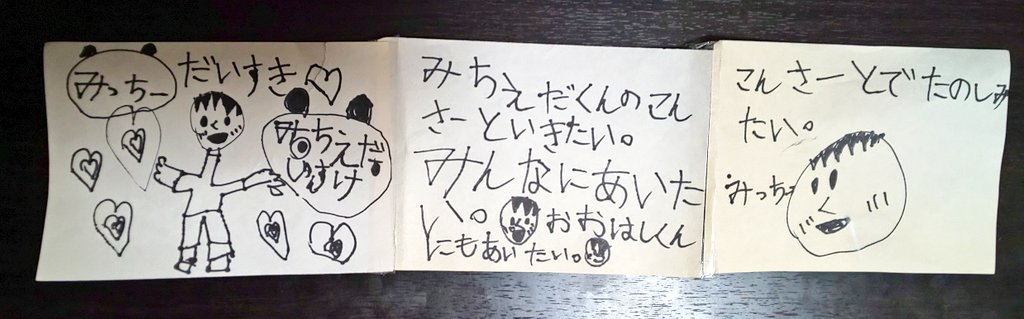 みっちー
だいすき
みちえだ
しゅんすけ
みちえだくんのこん
さーといきたい。
みんなにあいた
い。おおはしくん
にもあいたい。
こんさーとでたのしみ
たい。
みっちー